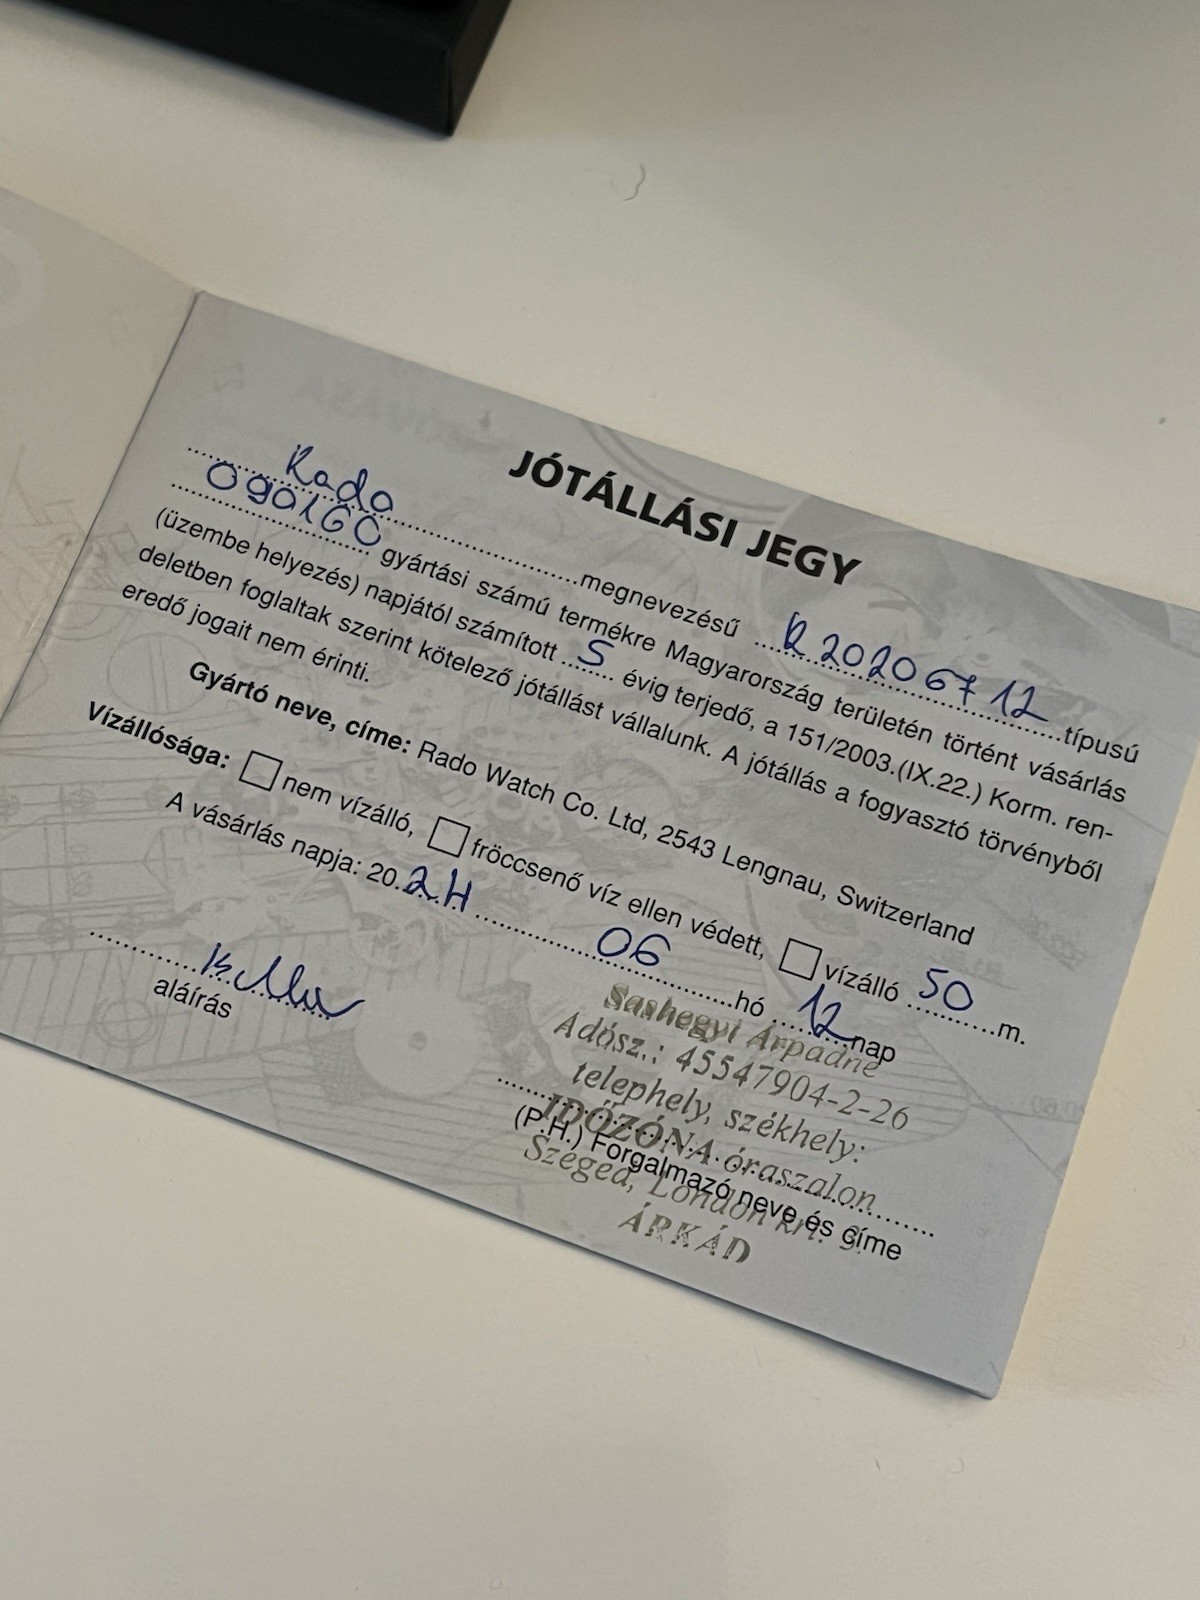 JÓTÁLLÁSI JEGY
Rado megnevezésű R20206712 típusú
090160 gyártási számú termékre Magyarország területén történt vásárlás
(üzembe helyezés) napjától számított 5 évig terjedő, a 151/2003.(IX.22.) Korm. ren-
deletben foglaltak szerint kötelező jótállást vállalunk. A jótállás a fogyasztó törvényből
eredő jogait nem érinti.
Gyártó neve, címe: Rado Watch Co. Ltd, 2543 Lengnau, Switzerland
Vízállósága: nem vízálló, fröccsenő víz ellen védett, vízálló 50 m.
A vásárlás napja: 2024 06 hó 12 nap
aláírás
Sashegyi Árpádné
Adósz.: 45547904-2-26
telephely, székhely:
IDŐZÓNA óraszalon
(P.H.) Forgalmazó neve és címe
Szeged, London krt. 3.
ÁRKÁD